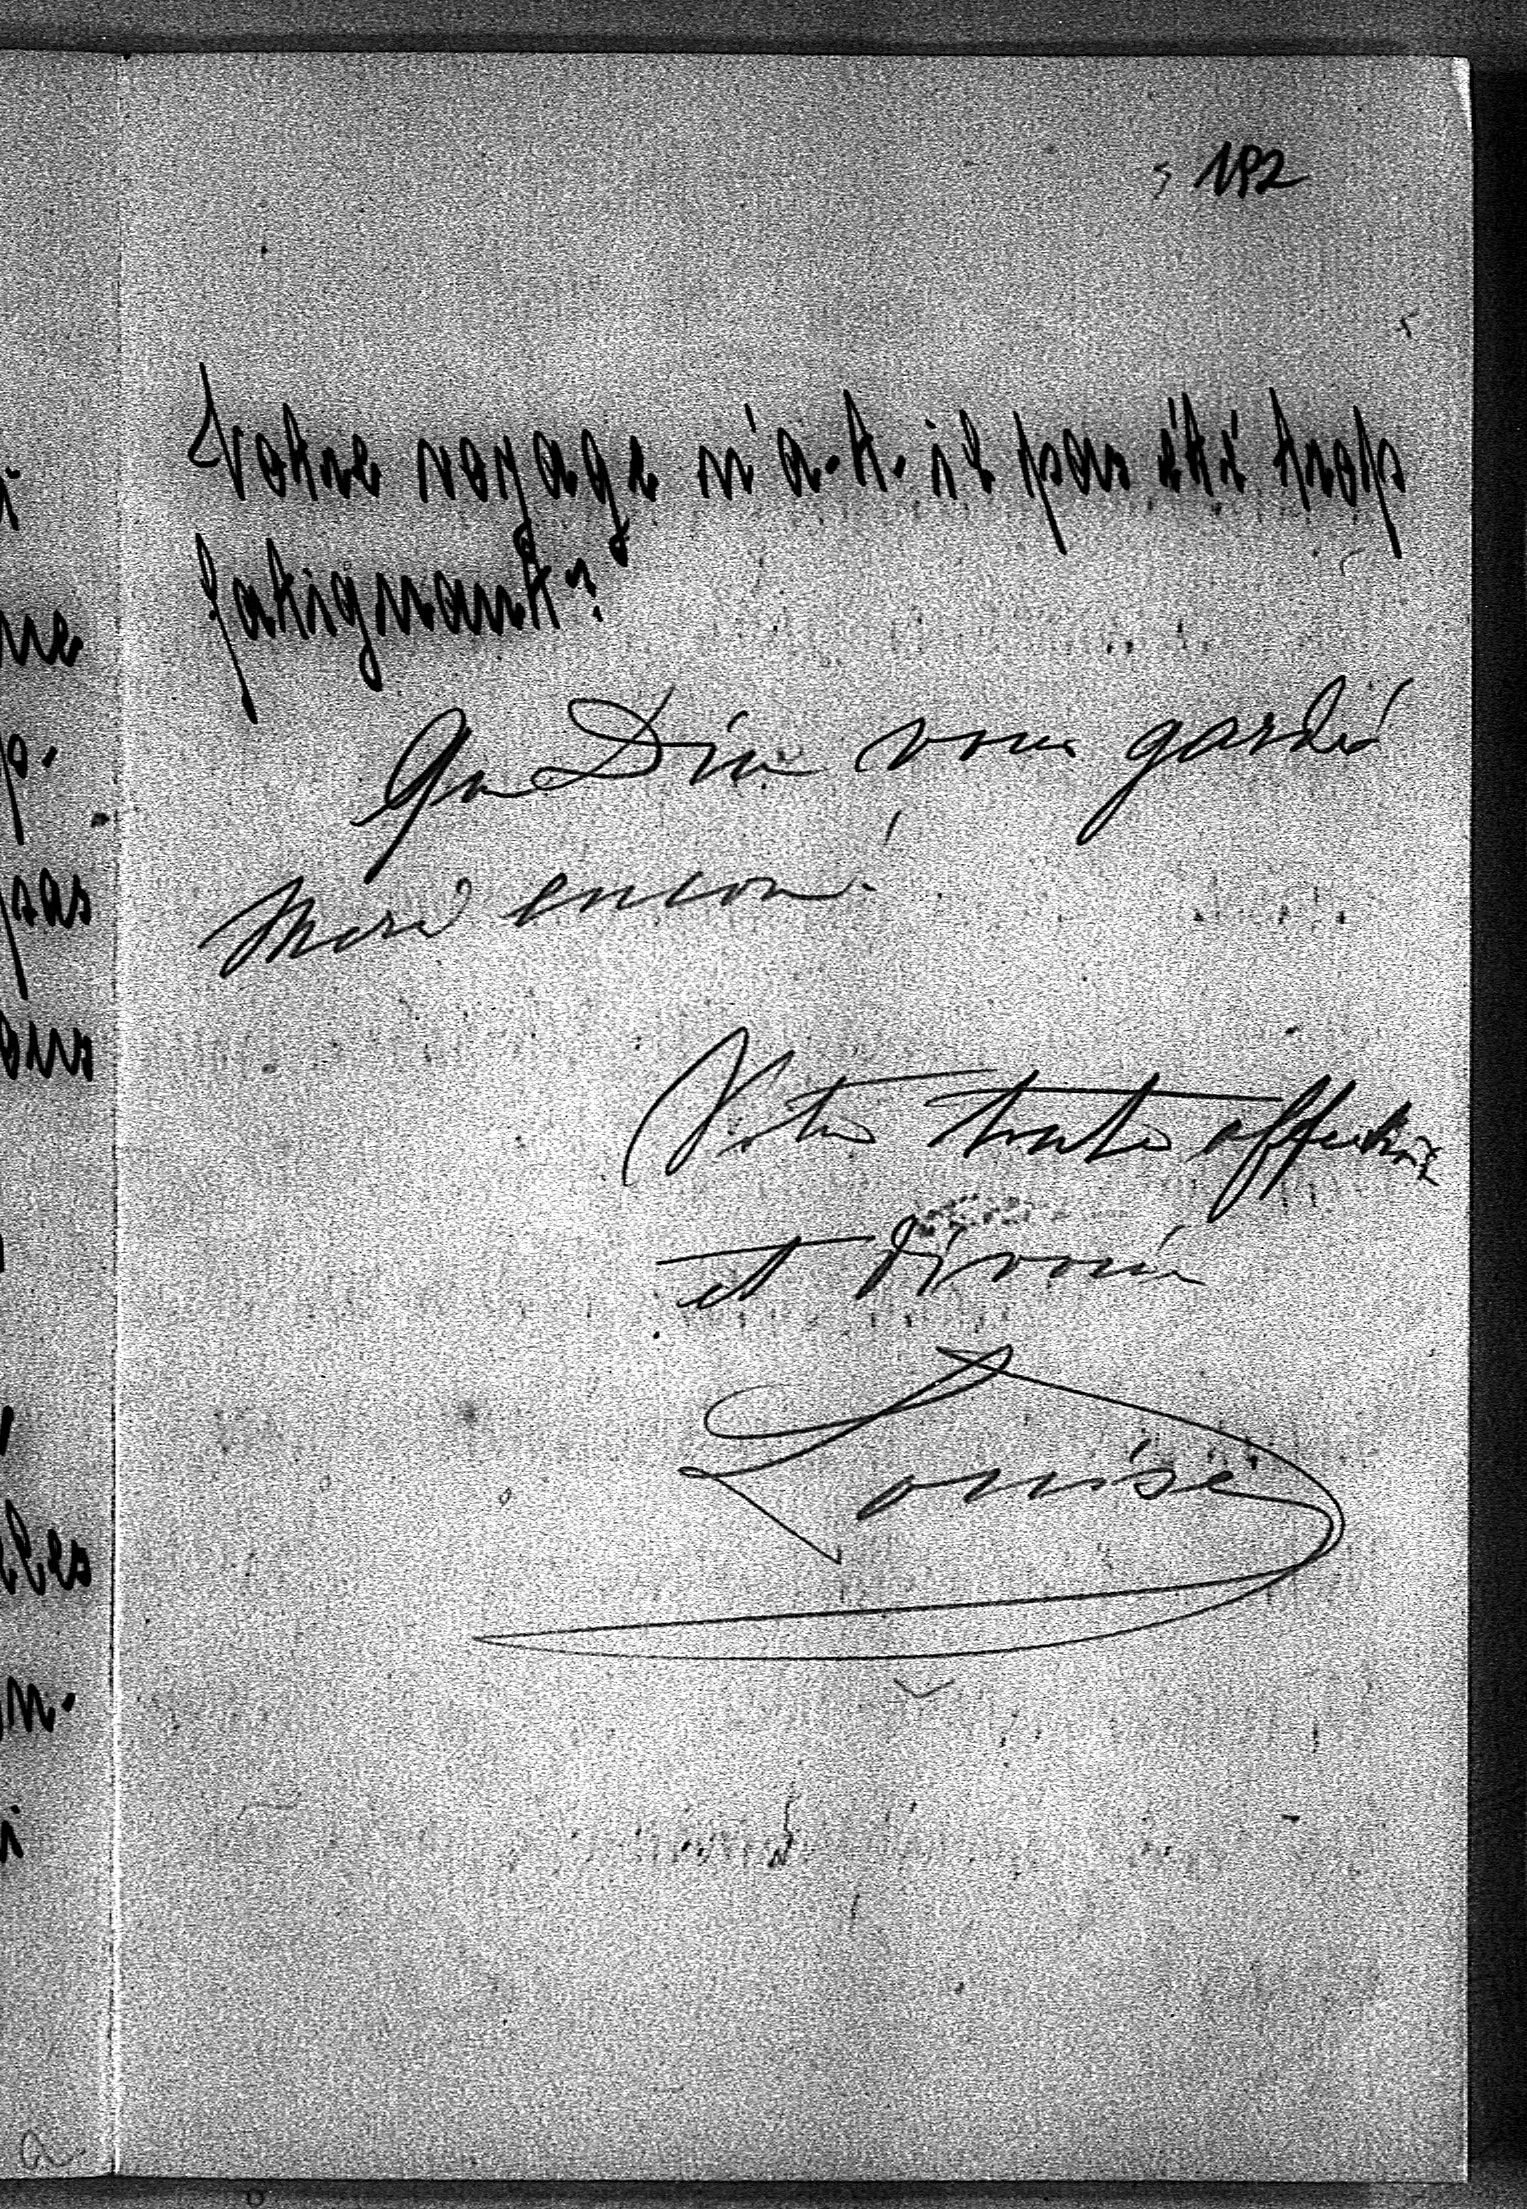 192
Votre voyage n'a-t-il pas été trop
fatignant?
Que Dieu vous garde!
Merci encore!
Votre tante affectionée
et dévouée
Louise